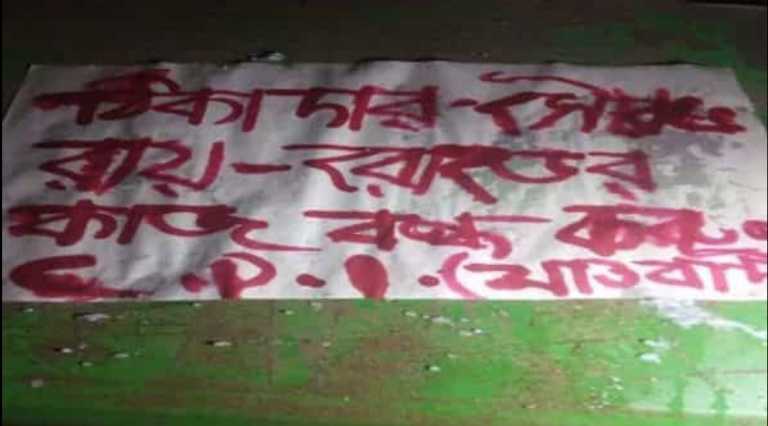 ঠিকাদার - সৌরভ
রায় - রোডের
কাজ বন্ধ কর
C.P.I. (মাওবাদী